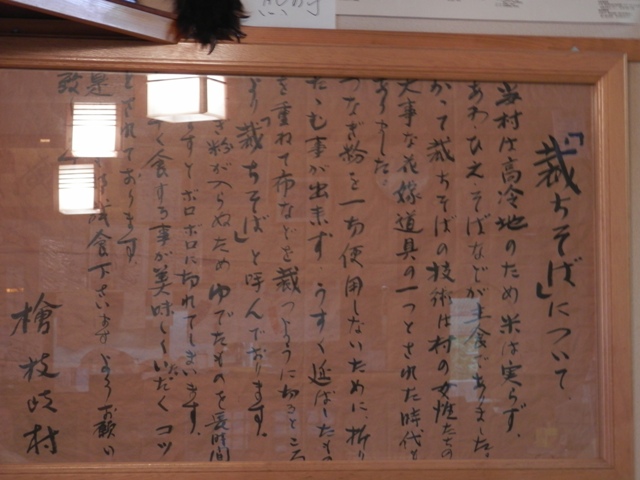 「裁ちそば」について
当村は高冷地のため米は実らず、
あわ・ひえ・そばなどが主食でありました。
かつて裁ちそばの技術は村の女性たちの
大事な花嫁道具の一つとされた時代も
ありました。
つなぎ粉を一切使用しないために、折り
たゝむ事が出来ず、うすく延ばしたもの
を重ねて布などを裁つように切るところ
より「裁ちそば」と呼んでおります。
き粉が入らぬため ゆでたものを長時間
ますとボロボロに切れてしまいます。
く食する事が美味しくいただくコツ
とされております。
是
食下さいます ようお願い
致
檜枝岐村